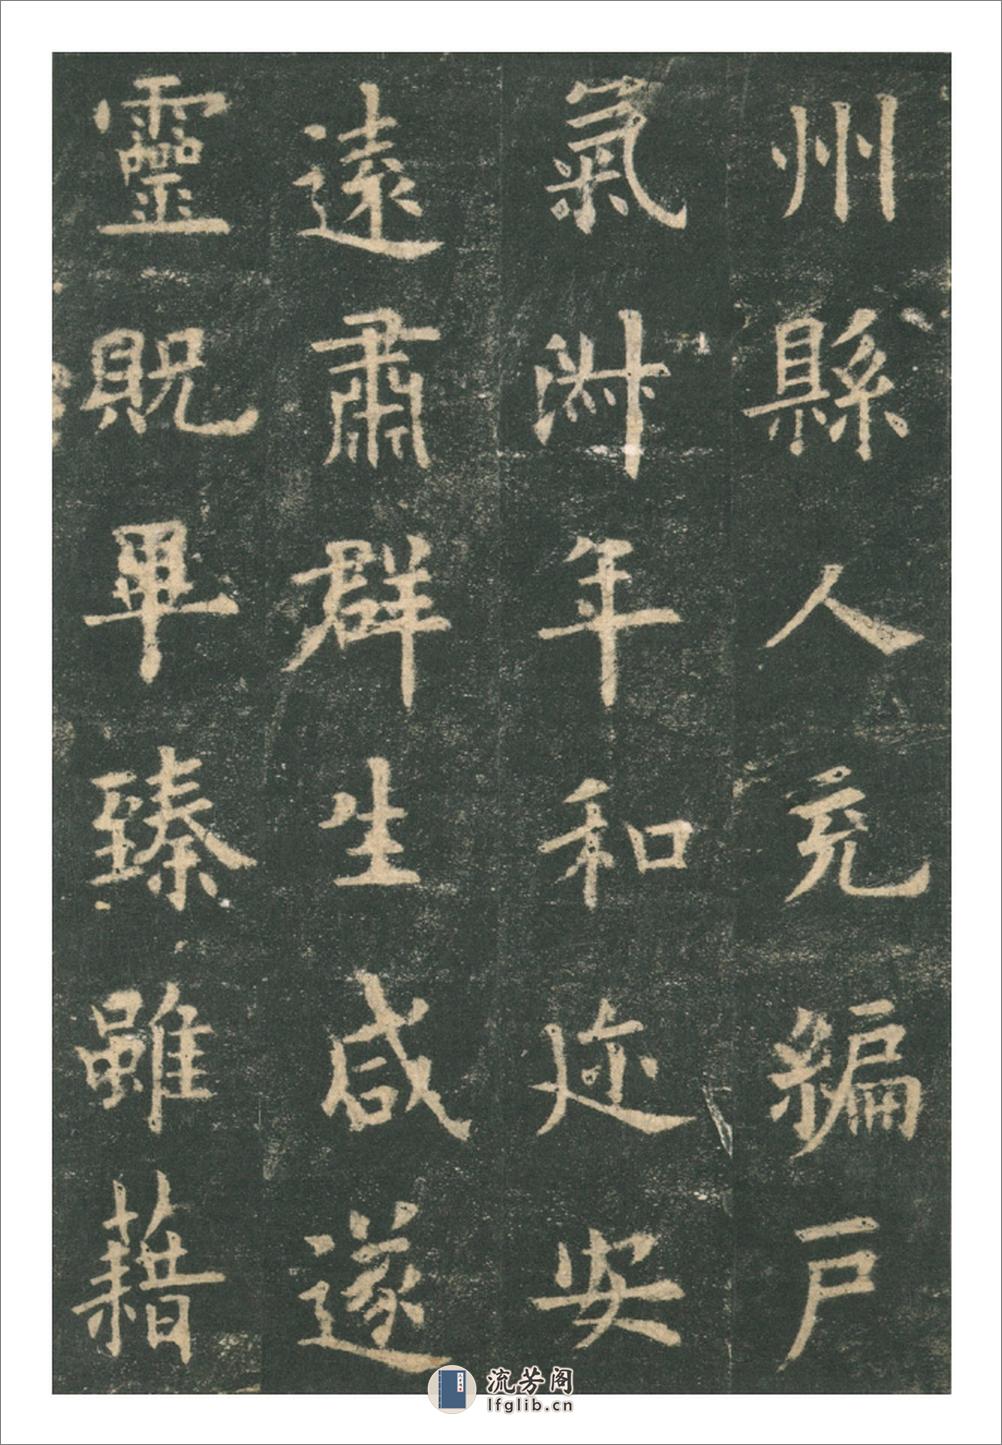 州縣人充編户
氣淋年和迩安
遠肅群生咸遂
靈貺畢臻雖藉
流芳阁
lfglib.cn